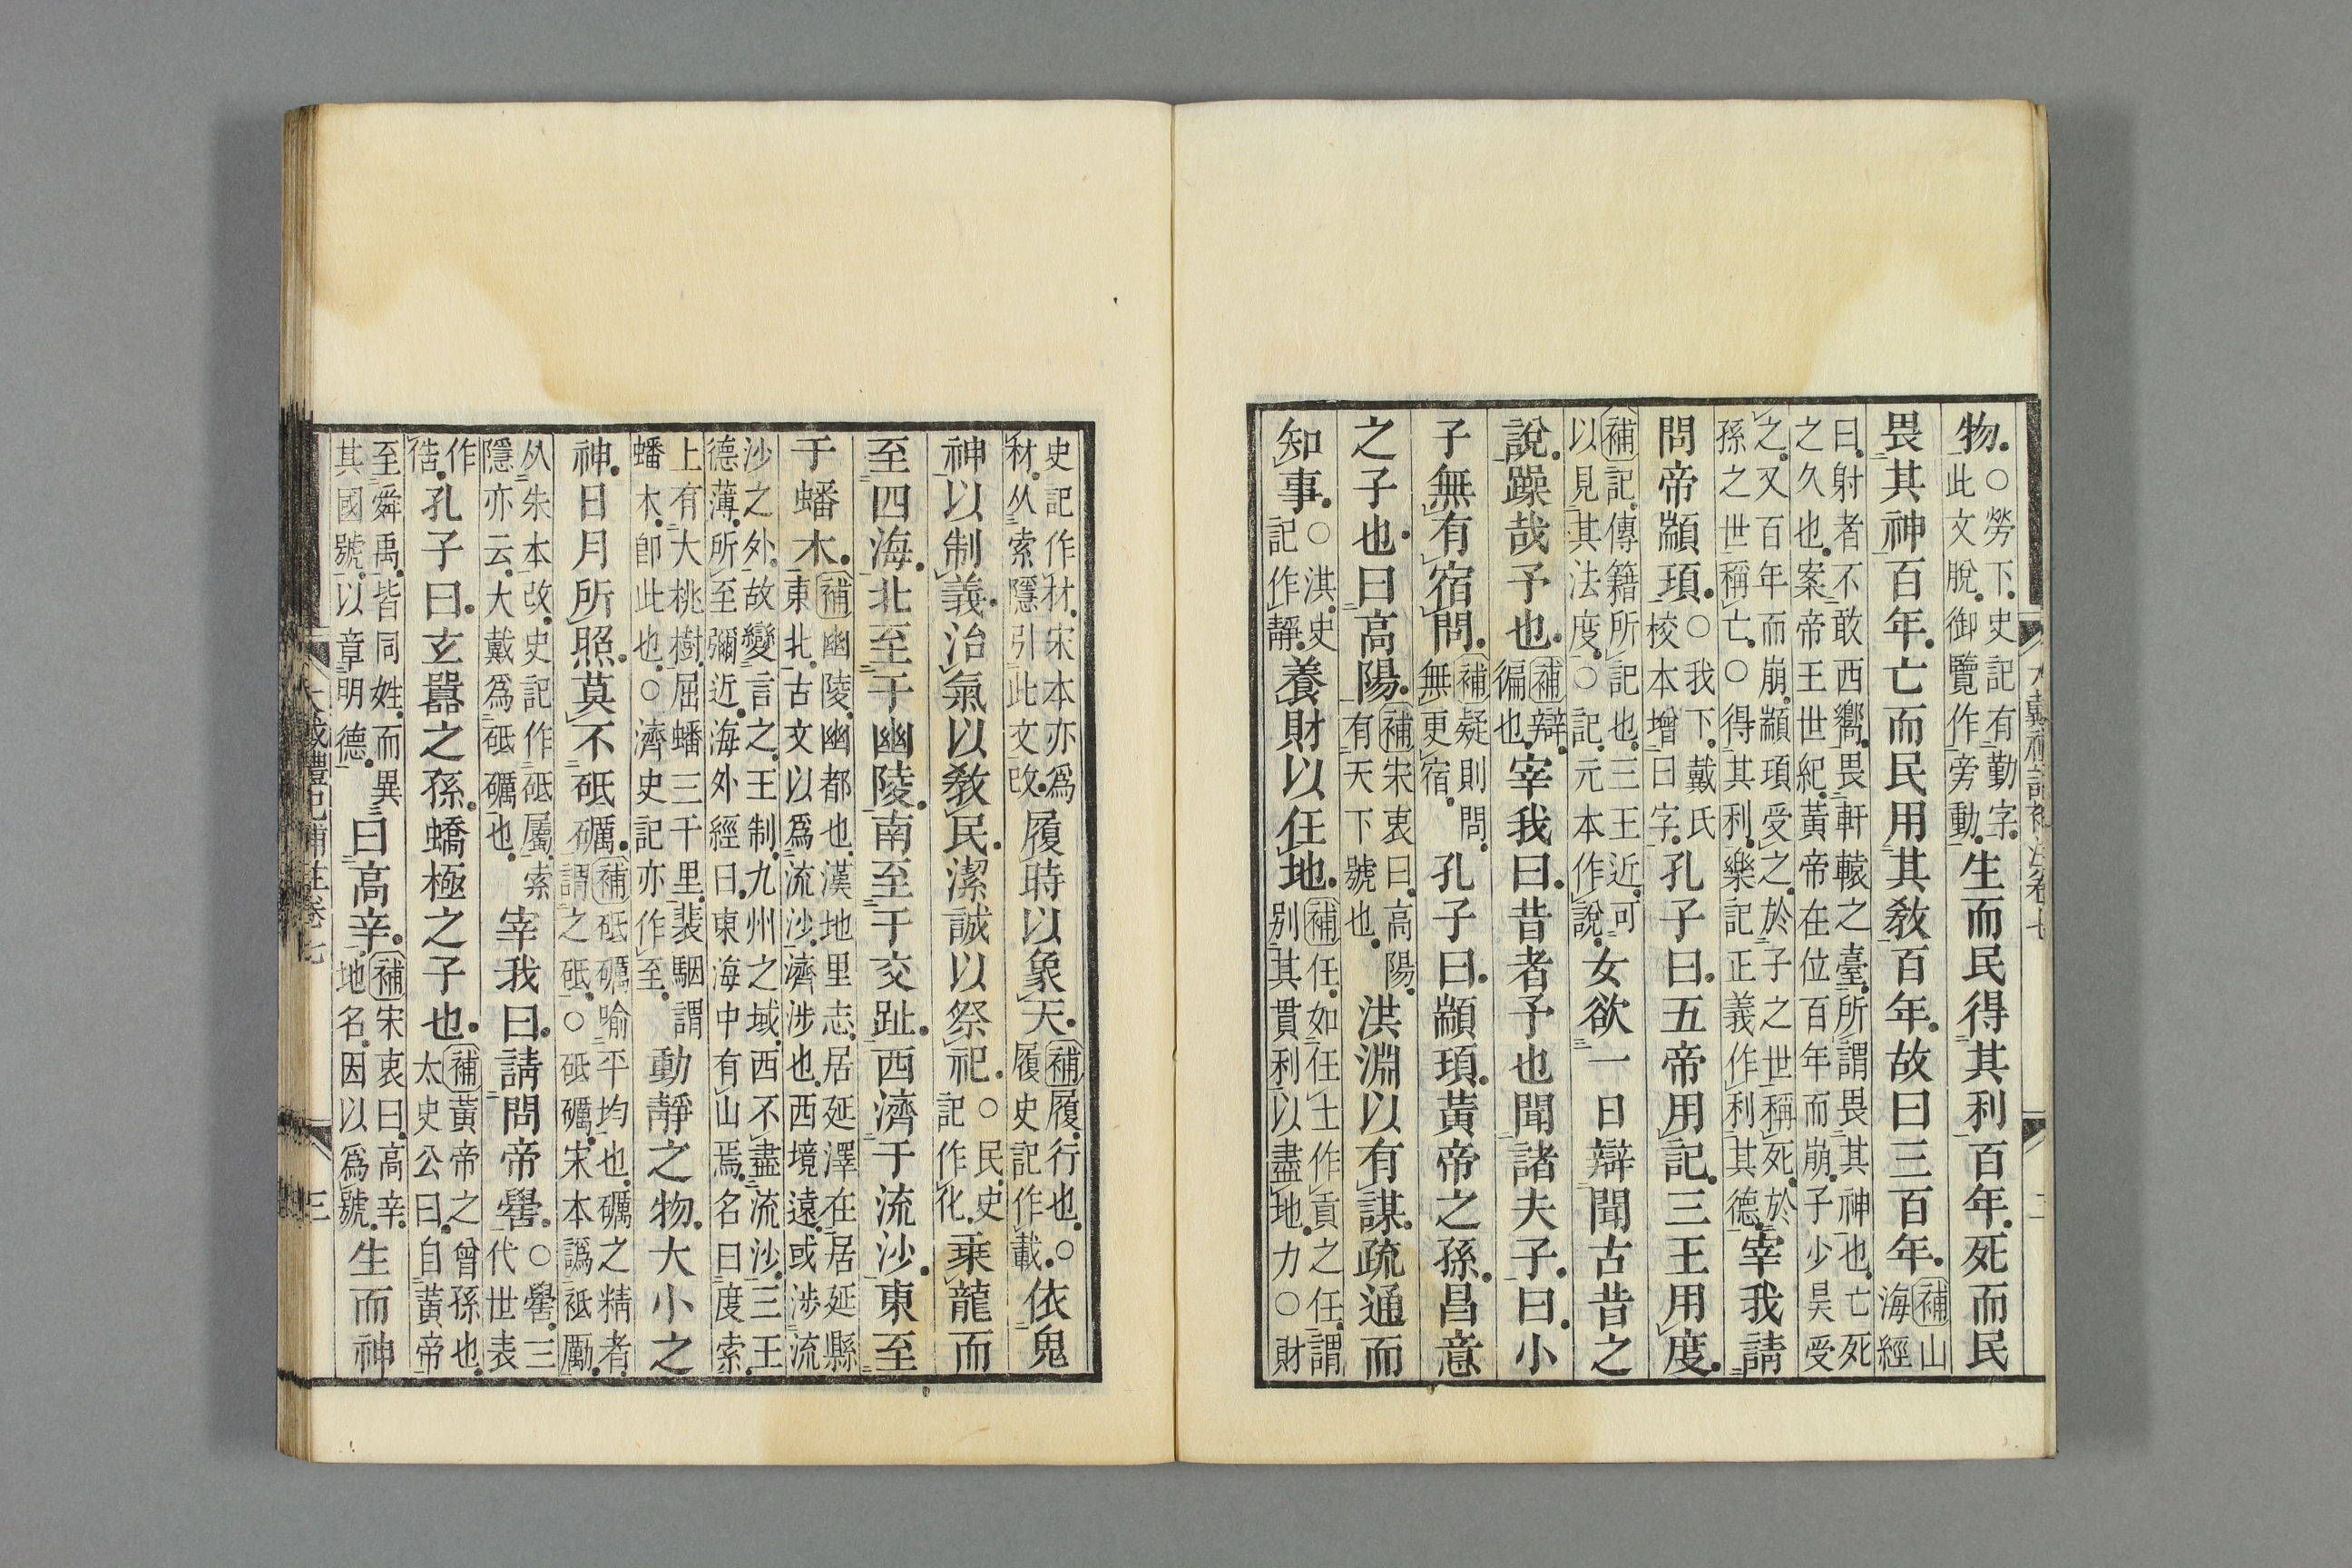 大戴禮記補注卷七 二
物。○勞下、史記有勤字。此文脫。御覽作旁動。生而民得其利百年。死而民
畏其神百年。亡而民用其敎百年。故曰三百年。補山海經
曰。射者不敢西嚮。畏軒轅之臺。所謂畏其神也。亡死之久也。案帝王世紀。黃帝在位百年而崩。子少昊受
之。又百年而崩。顓頊受之。於子之世稱死。於孫之世稱亡。○得其利。樂記正義作利其德。宰我請
問帝顓頊。○我下、戴氏校本增曰字。孔子曰。五帝用記。三王用度。
補記。傳籍所記也。三王近。可以見其法度。○記。元本作說。女欲一日辯聞古昔之
說。躁哉予也。補辯。徧也。宰我曰。昔者予也聞諸夫子。曰。小
子無有宿問。補疑則問。無更宿。孔子曰。顓頊。黃帝之孫。昌意
之子也。曰高陽。補宋衷曰。高陽。有天下號也。洪淵以有謀。疏通而
知事。○淇。史記作靜。養財以任地。補任。如任土作貢之任。謂別其貫利以盡地力○財
史記作材。宋本亦爲材。从索隱引此文改。履時以象天。補履。行也。○履史記作載。依鬼
神以制義。治氣以敎民。潔誠以祭祀。○民。史記作化。乗龍而
至四海。北至于幽陵。南至于交趾。西濟于流沙。東至
于蟠木。補幽陵。幽都也。漢地里志。居延澤在居延縣東北。古文以爲流沙。濟涉也。西境遠。或涉流
沙之外。故變言之。王制。九州之域。西不盡流沙。三王德薄。所至彌近。海外經曰。東海中有山焉。名曰度索。
上有大桃樹。屈蟠三千里。裴駰謂蟠木。卽此也。○濟史記亦作至。動靜之物。大小之
神。日月所照。莫不砥礪。補砥礪喻平均也。礪之精者。謂之砥。○砥礪。宋本譌祗勵。
从朱本改。史記作砥屬。索隱亦云。大戴爲砥礪也。宰我曰。請問帝嚳。○嚳。三代世表
作俈。孔子曰。玄囂之孫。蟜極之子也。補黃帝之曾孫也。太史公曰。自黃帝
至舜禹。皆同姓。而異其國號。以章明德。曰高辛。補宋衷曰。高辛。地名。因以爲號。生而神
大戴禮記補注卷七 三